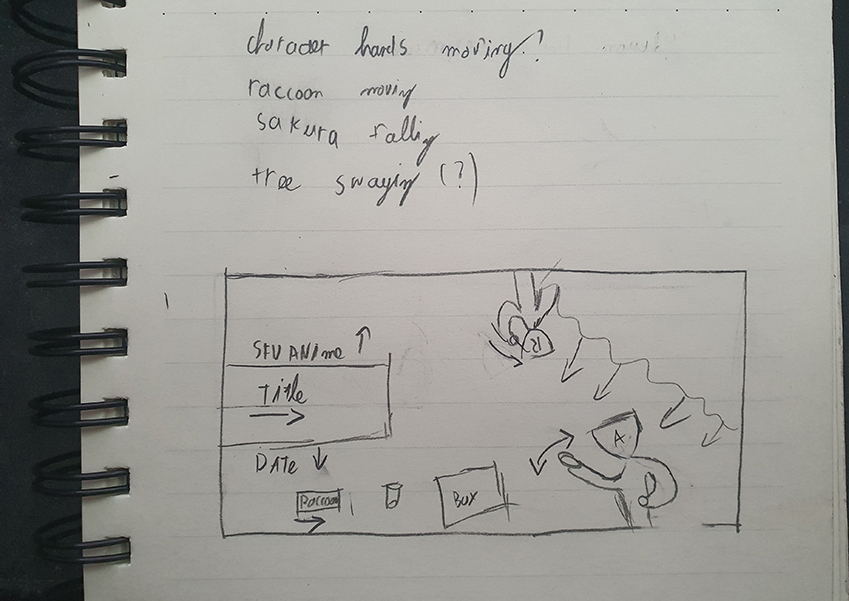 character hands moving?
raccoon moving
sakura falling
tree swaying (?)
SFU ANime ↑
Title
DATe ↓
Raccoon
BOX
R
A